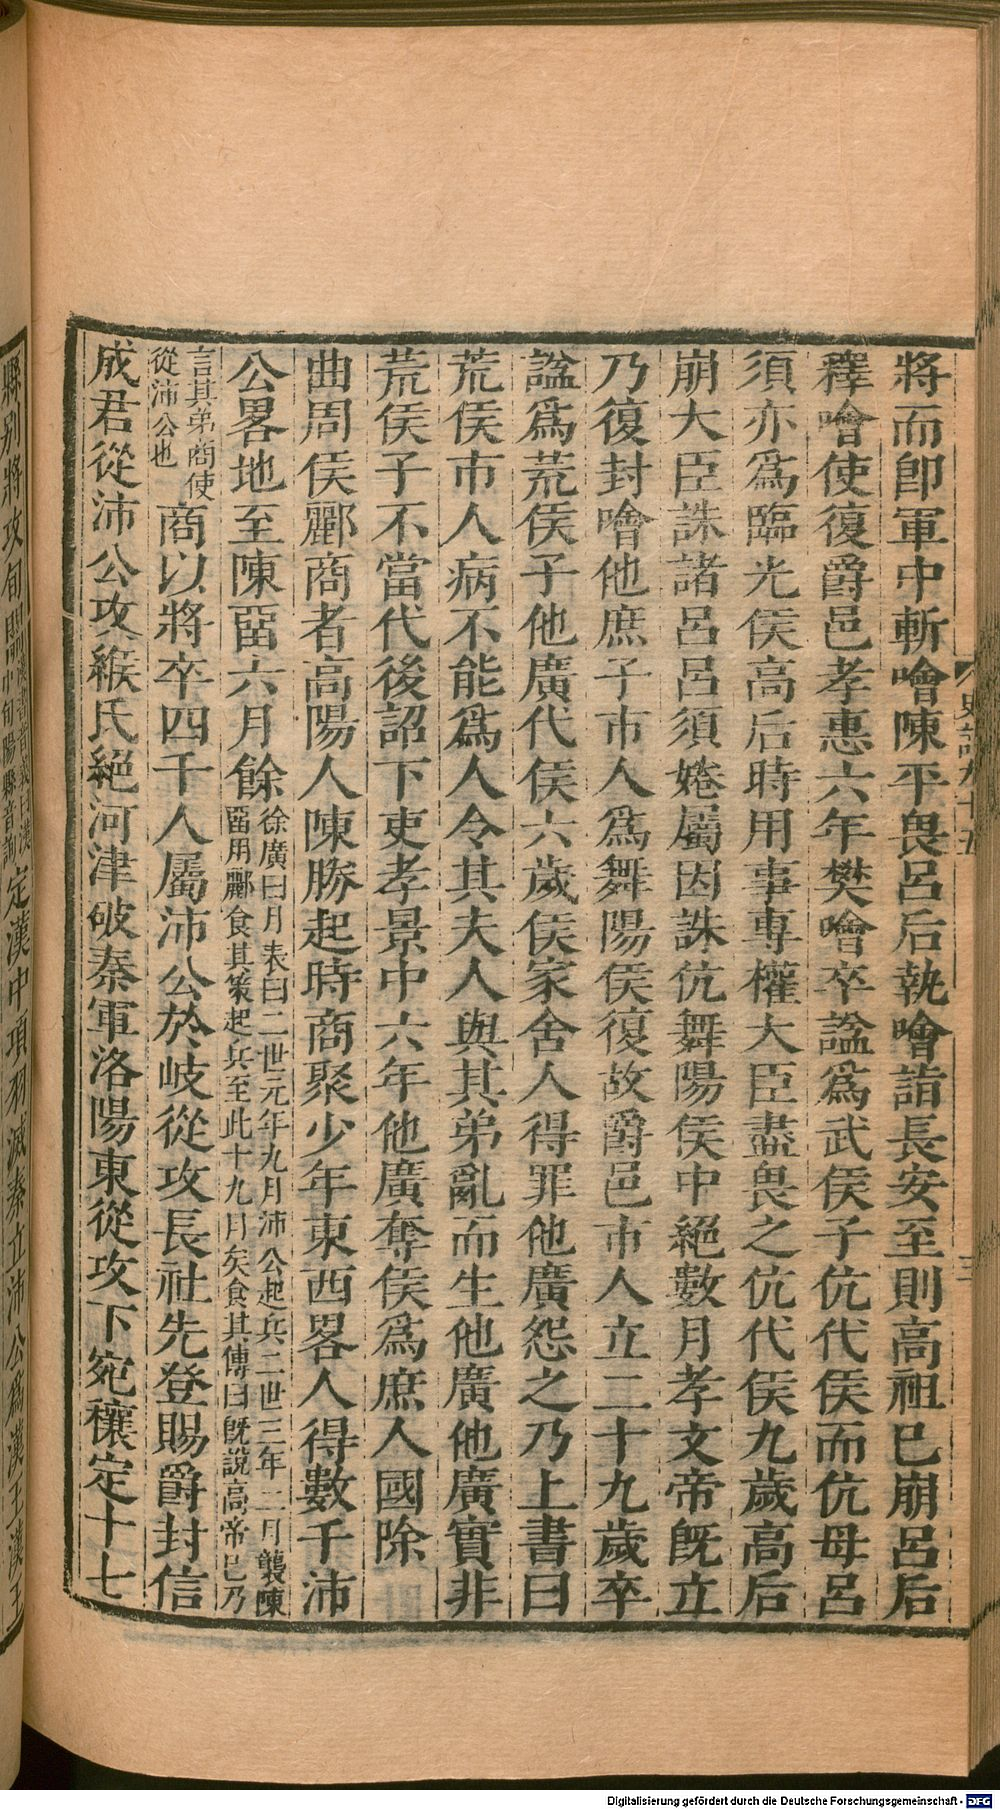 將而卽軍中斬噲陳平畏呂后執噲詣長安至則高祖已崩呂后
釋噲使復爵邑孝惠六年樊噲卒諡爲武侯子伉代侯而伉母呂
須亦爲臨光侯高后時用事專權大臣盡畏之伉代侯九歲高后
崩大臣誅諸呂呂須婘屬因誅伉舞陽侯中絕數月孝文帝旣立
乃復封噲他庶子市人爲舞陽侯復故爵邑市人立二十九歲卒
諡爲荒侯子他廣代侯六歲侯家舍人得罪他廣怨之乃上書曰
荒侯市人病不能爲人令其夫人與其弟亂而生他廣他廣實非
荒侯子不當代後詔下吏孝景中六年他廣奪侯爲庶人國除
曲周侯酈商者高陽人陳勝起時商聚少年東西畧人得數千沛
公畧地至陳畱六月餘徐廣曰月表曰二世元年九月沛公起兵二世三年二月襲陳
畱用酈食其策起兵至此十九月矣食其傳曰旣說高帝已乃
言其弟商使
從沛公也商以將卒四千人屬沛公於岐從攻長社先登賜爵封信
成君從沛公攻緱氏絕河津破秦軍洛陽東從攻下宛穰定十七
縣別將攻旬關漢書音義曰漢
中旬陽縣音詢定漢中項羽滅秦立沛公爲漢王漢王
史記九十五
三
Digitalisierung gefördert durch die Deutsche Forschungsgemeinschaft - DFG